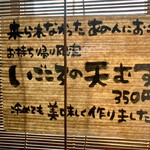 来られなかったあの人にお
お持ち帰り限定
いごころの天むす
350円
冷めても美味しく作りました